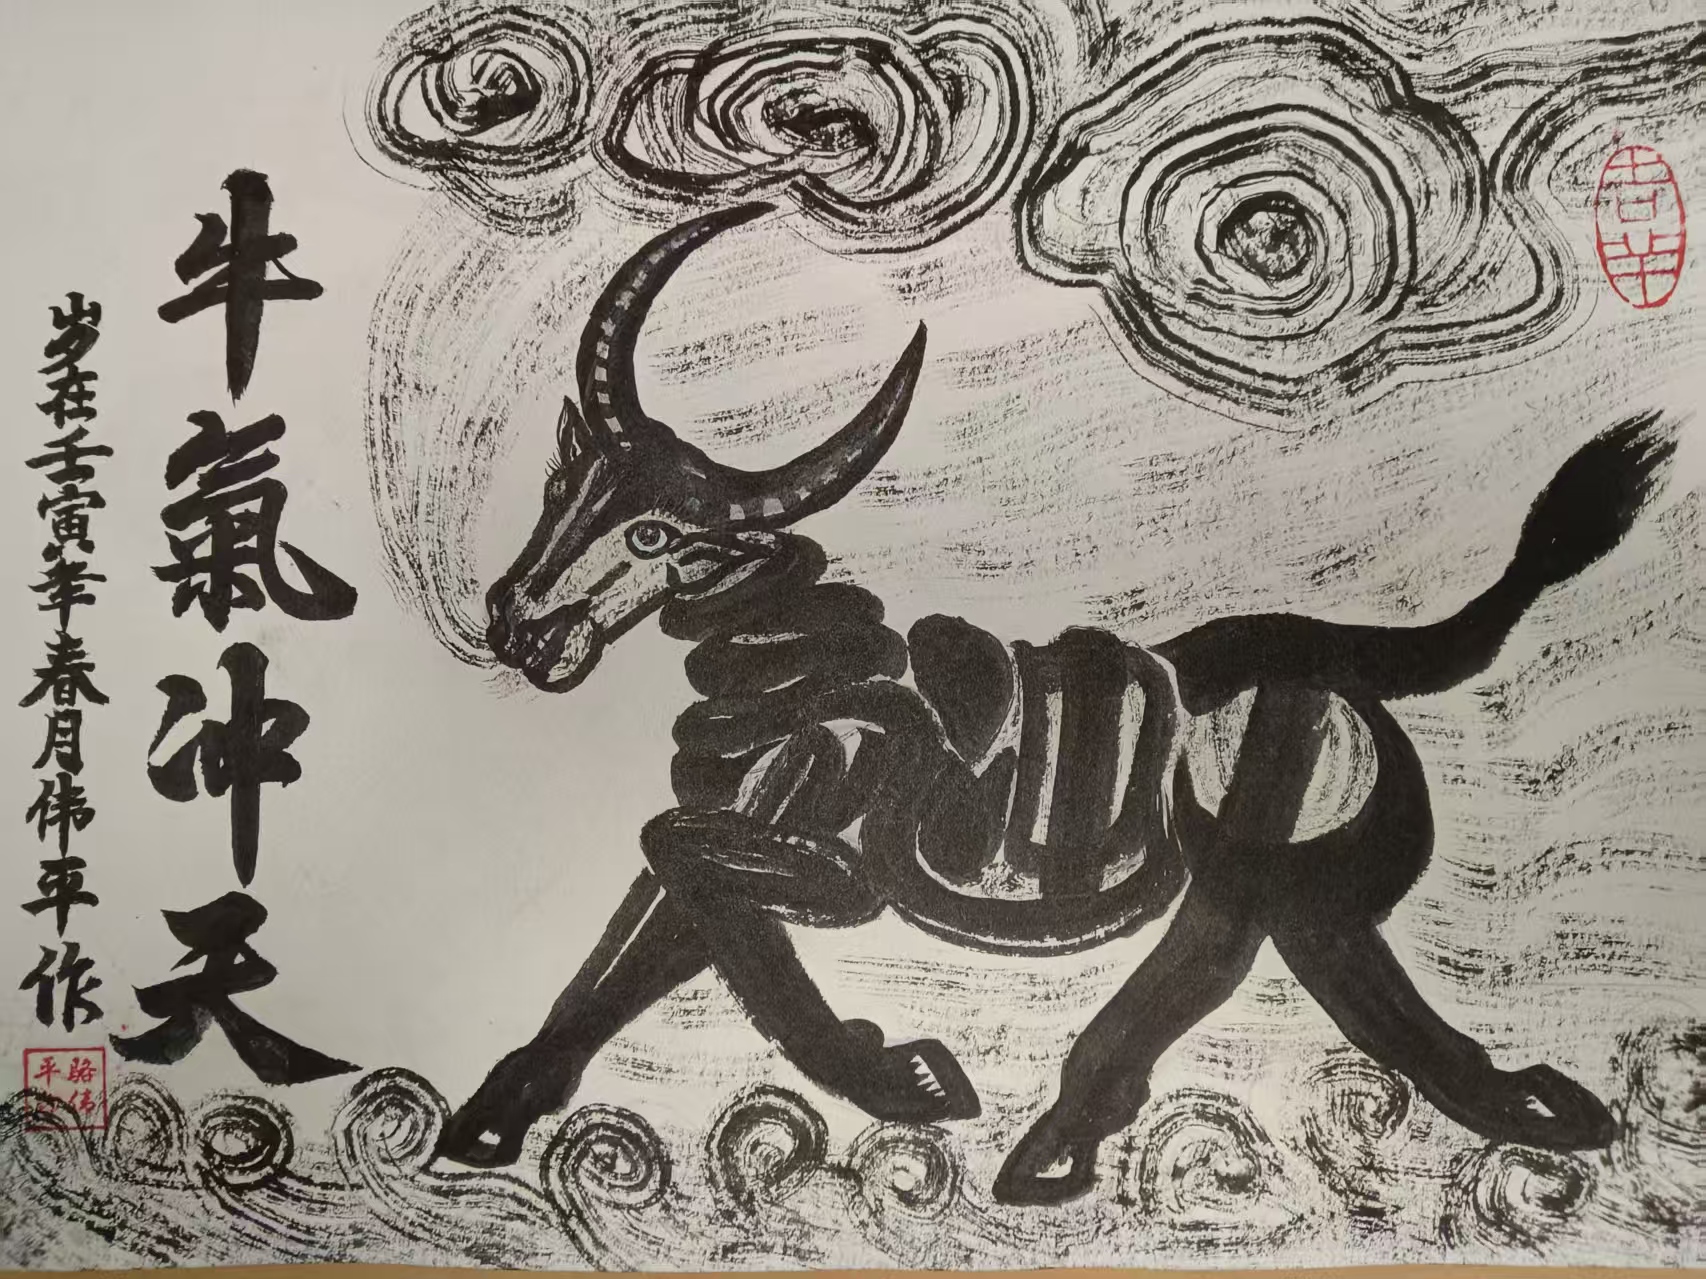 牛氣冲天
岁在壬寅年春月伟平作
骆伟
平印